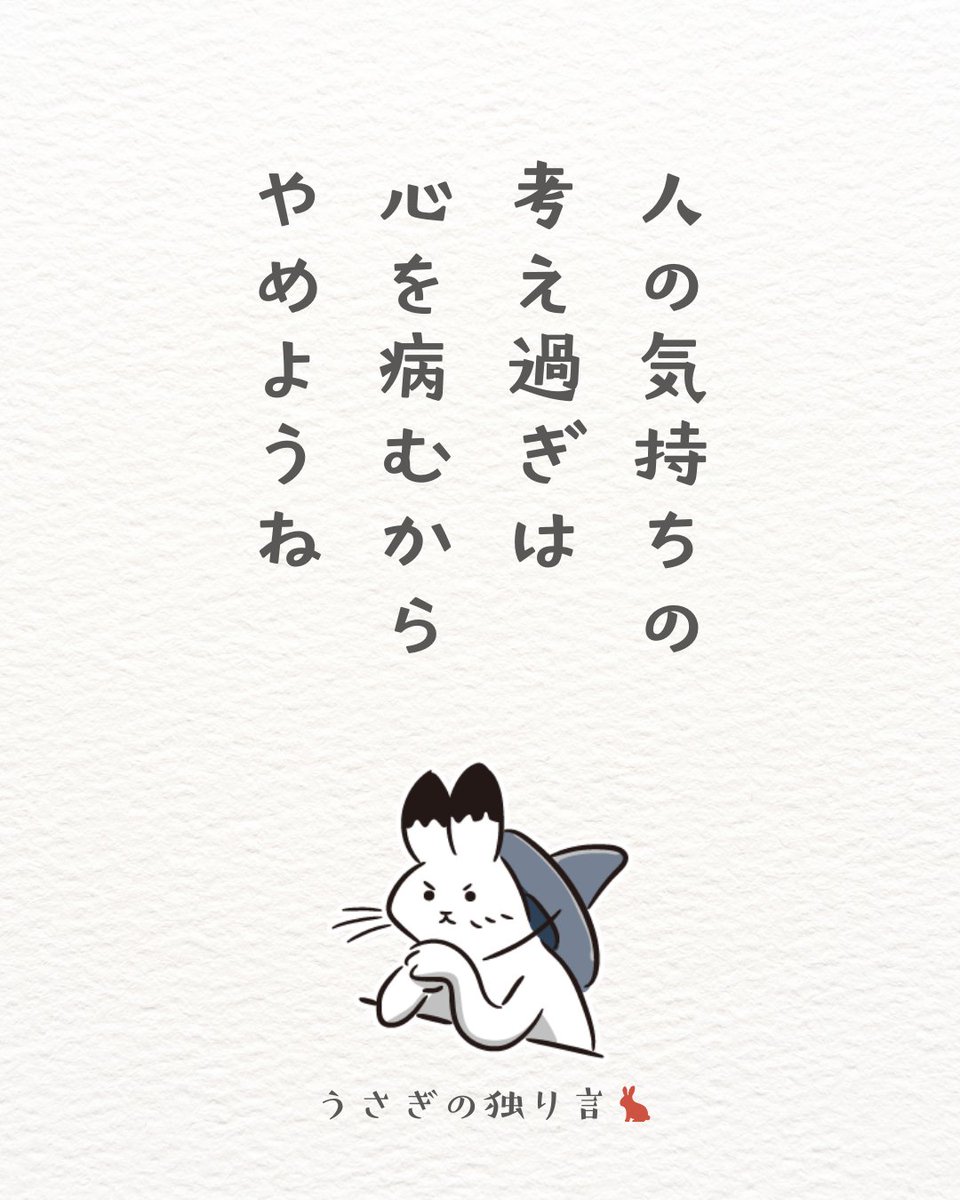 人の気持ちの
考え過ぎは
心を病むから
やめようね
うさぎの独り言